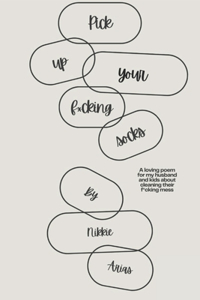 Pick
up
your
f*cking
socks
A loving poem
for my husband
and kids about
cleaning their
f*cking mess
By
Nikkie
Arias